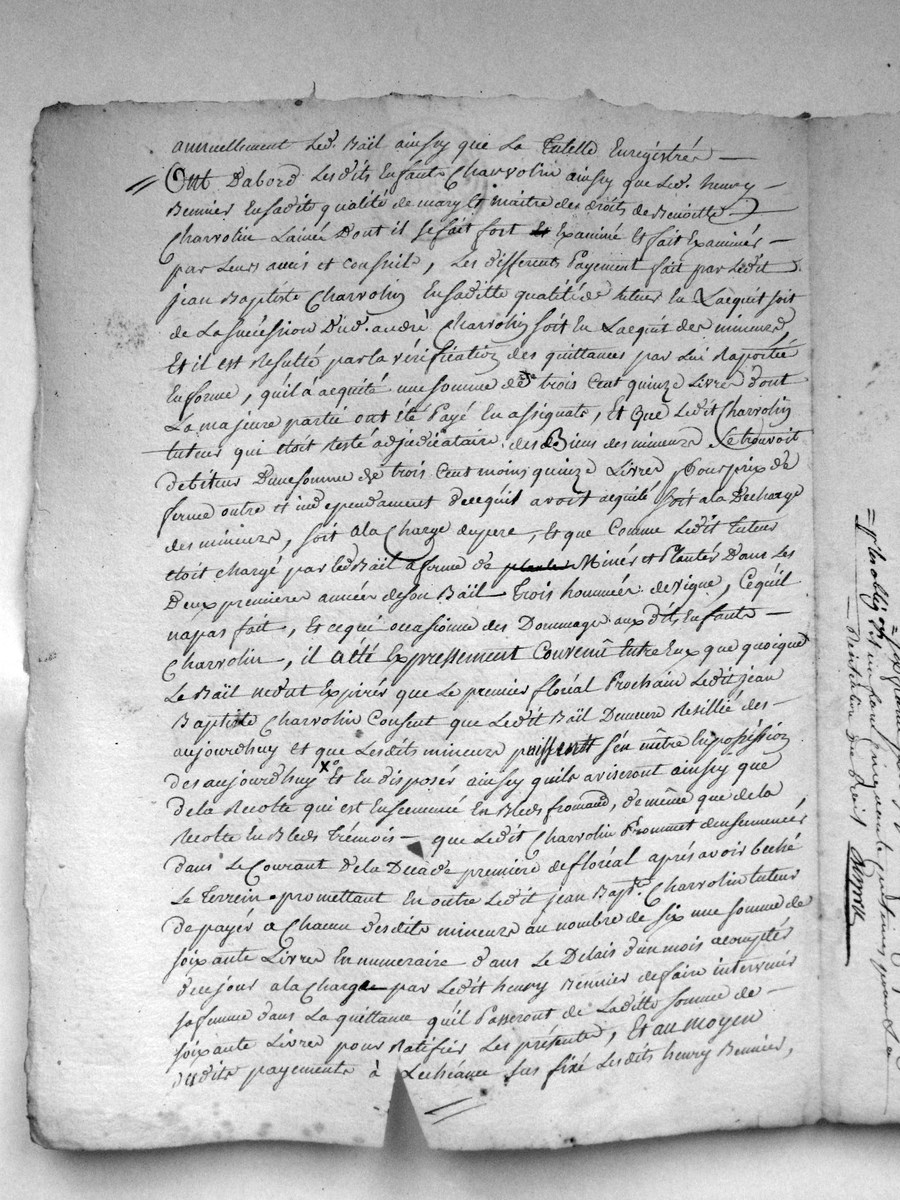 annuellement Led. Baïl ainsy que La Tutelle Enregistrée —
// Ont Dabord Lesdits Enfants Charvolin ainsy que Led. henry —
Bennier Ensadite qualité de mary Et maitre des droits de Benoitte —
Charvolin Lainée Dont il se fait fort Et Examiné Et fait Examinér —
par Leurs amis et conseils, Les differents Payement fait par Ledit
jean Baptiste Charvolin Ensaditte qualité de tuteur En Lacquit soit
de La sucéssion Dud. andré Charvolin soit En Lacquit des mineurs,
Et il est Resulté par la vérification des quittances par Lui Raportée
En forme, quil à acquité une somme de trois Cent quinze Livres dont
La majeure partie ont été Payé En assignats, Et que Ledit Charvolin
tuteur qui étoit Resté adjudicataire des Biens des mineurs Se trouvoit
debiteur Dune somme de trois Cent moins quinze Livres Pour prix de
ferme outre et independament de cequil avoit acquité soit ala Decharge
des mineurs, soit ala Charge du pere, Et que Comme Ledit tuteur
étoit chargé par led Baïl aferme de plante Miner et Plantér Dans Les
Deux premiere année de son Baïl Trois hommée de vigne, Cequil
napas fait, Et cequi occasionne des Dommage aux dit, Enfants —
Charvolin, il Aété Expressement Convenû Entre Eux que quoique
Le Baïl ne dut Expirér que Le premier floréal Prochain Ledit jean
Baptiste Charvolin Consent que Ledit Baïl Demeure Resillié des —
aujourdhuy et que Lesdits mineurs puissent s'en mêtre En possession
des aujourdhuy X° Et En disposér ainsy quils aviseront ainsy que
de la Recolte qui est Ensemencé En Bleds fromand, de même que de la
Recolte En Bleds Trémois — que Ledit Charvolin Prommet densemencér
dans Le Courant de la Decade premiere de floréal aprés avoir beché
Le Terrein promettant En outre Ledit jean Bapt.e Charvolin tuteur
De payér a Chacun desdits mineurs au nombre de six une somme de
soixante Livres En numeraire dans Le Delais d'un mois acomptér
de ce jour ala Charge par Ledit henry Bennier de faire intervenir
sa femme dans La quittance quil Passeront de Laditte somme de —
soixante Livres pour Ratifiér Les présente, Et au moyen
dudits payements à Lechéance sus fixé Lesdits henry Bennier,
//